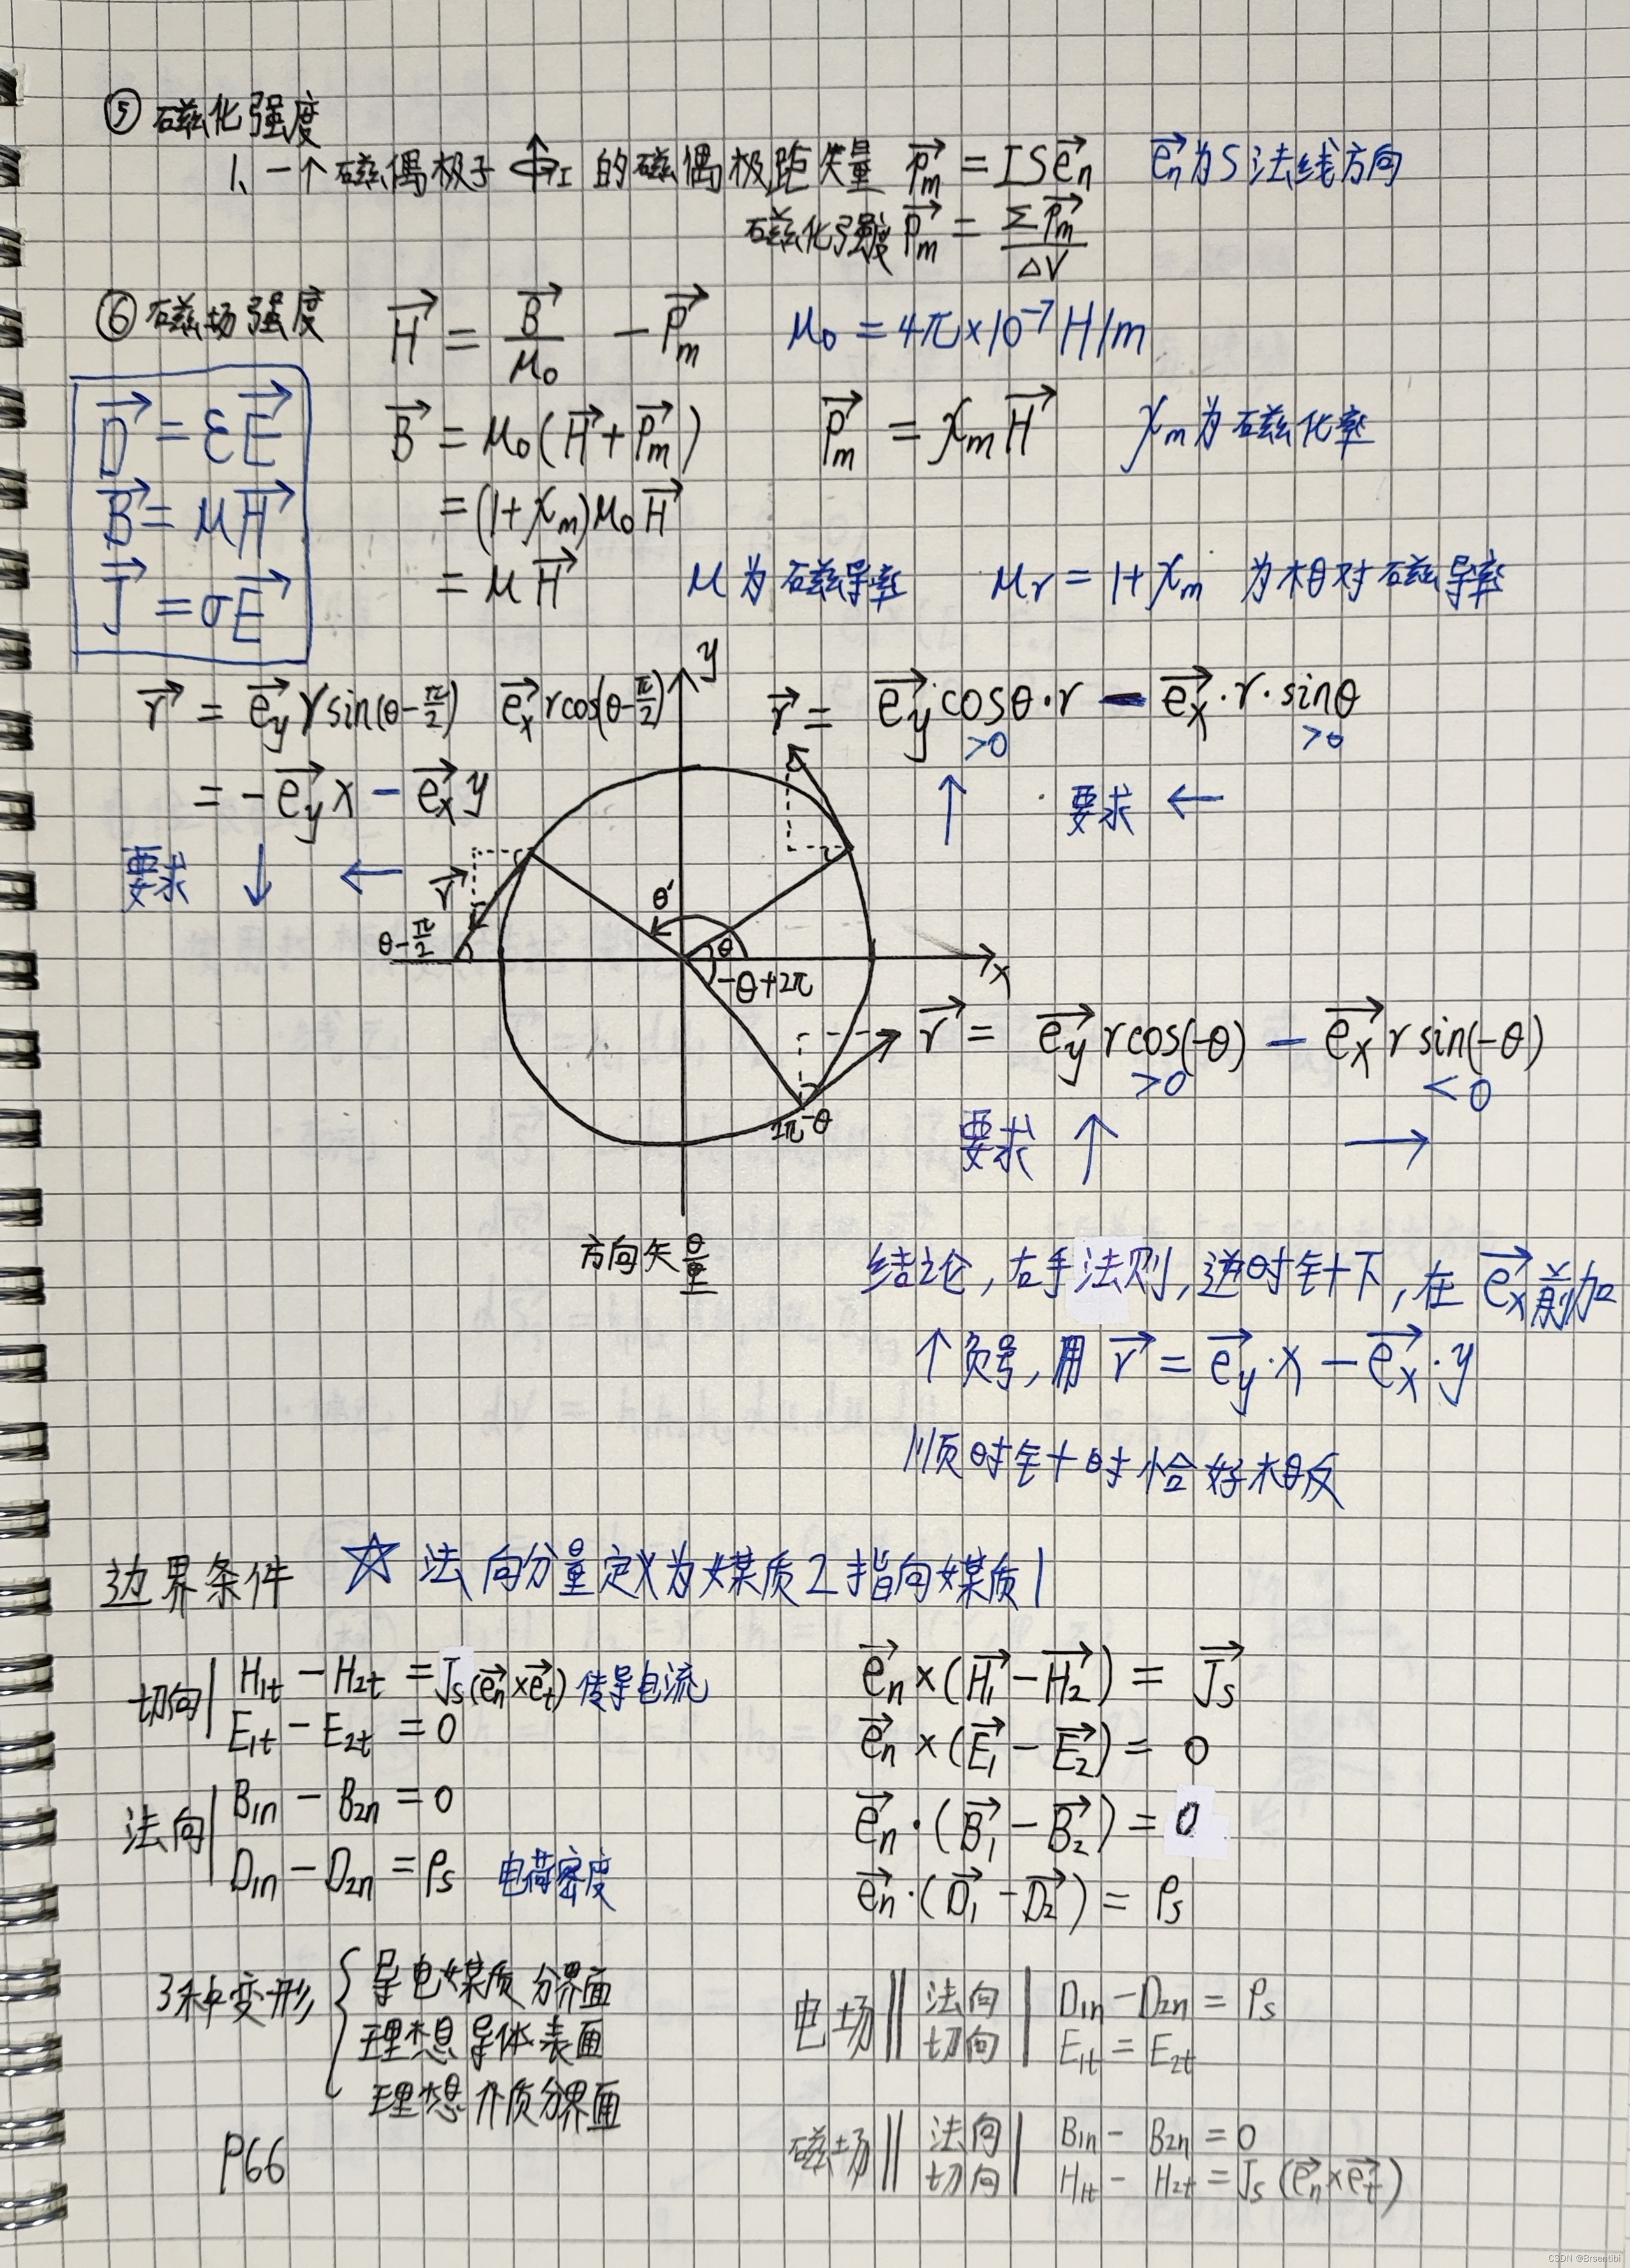 ⑤ 磁化强度
1、一个磁偶极子 I 的磁偶极距矢量 p⃗m = ISe⃗n e⃗n为S法线方向
磁化强度 P⃗m = Σp⃗m / ΔV
⑥ 磁场强度 H⃗ = B⃗/μ₀ − P⃗m μ₀ = 4π×10⁻⁷ H/m
D⃗ = εE⃗
B⃗ = μH⃗
J⃗ = σE⃗
B⃗ = μ₀(H⃗ + P⃗m) P⃗m = χmH⃗ χm为磁化率
= (1+χm)μ₀H⃗
= μH⃗ μ为磁导率 μr = 1+χm 为相对磁导率
r⃗ = e⃗y r sin(θ−π/2) e⃗x r cos(θ−π/2)
= −e⃗y x − e⃗x y
要求 ↓ ←
y
r⃗ = e⃗y cosθ·r − e⃗x·r·sinθ
>0 >0
↑ 要求 ←
r⃗
θ−π/2
θ'
θ
−θ+2π
x
2π−θ
r⃗ = e⃗y r cos(−θ) − e⃗x r sin(−θ)
>0 <0
要求 ↑ →
方向矢量
结论,右手法则,逆时针下,在 e⃗x前加
个负号,用 r⃗ = e⃗y·x − e⃗x·y
顺时针时恰好相反
边界条件 ☆ 法向分量定义为媒质2指向媒质1
切向 H1t − H2t = Js(e⃗n×e⃗t) 传导电流
E1t − E2t = 0
法向 B1n − B2n = 0
D1n − D2n = ρs 电荷密度
e⃗n×(H⃗1−H⃗2) = J⃗s
e⃗n×(E⃗1−E⃗2) = 0
e⃗n·(B⃗1−B⃗2) = 0
e⃗n·(D⃗1−D⃗2) = ρs
3种变形
导电媒质分界面
理想导体表面
理想介质分界面
P66
电场 法向 D1n−D2n = ρs
切向 E1t = E2t
磁场 法向 B1n − B2n = 0
切向 H1t − H2t = Js(e⃗n×e⃗t)
CSDN @Brsentibi